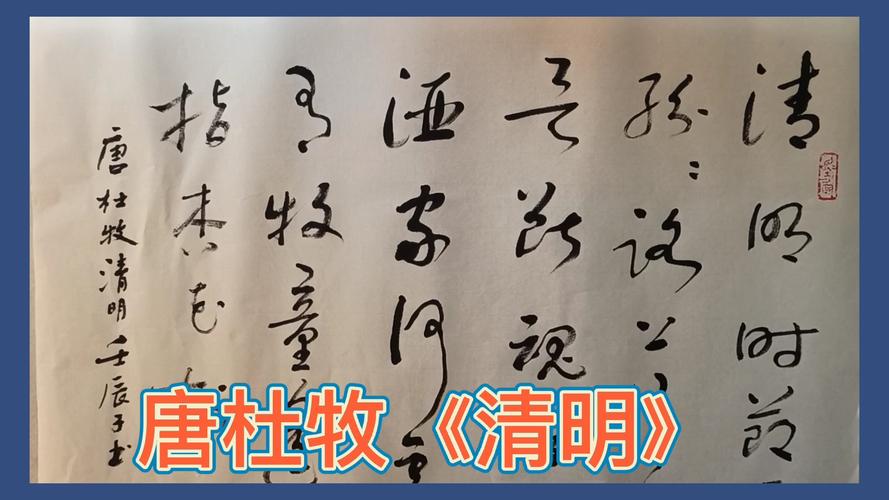 清明时节
纷纷路上
欲断魂
酒家何处
有牧童遥
指杏花
唐杜牧清明壬辰子书
唐杜牧《清明》